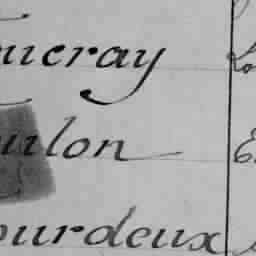 ucray
ulon
ourdeux